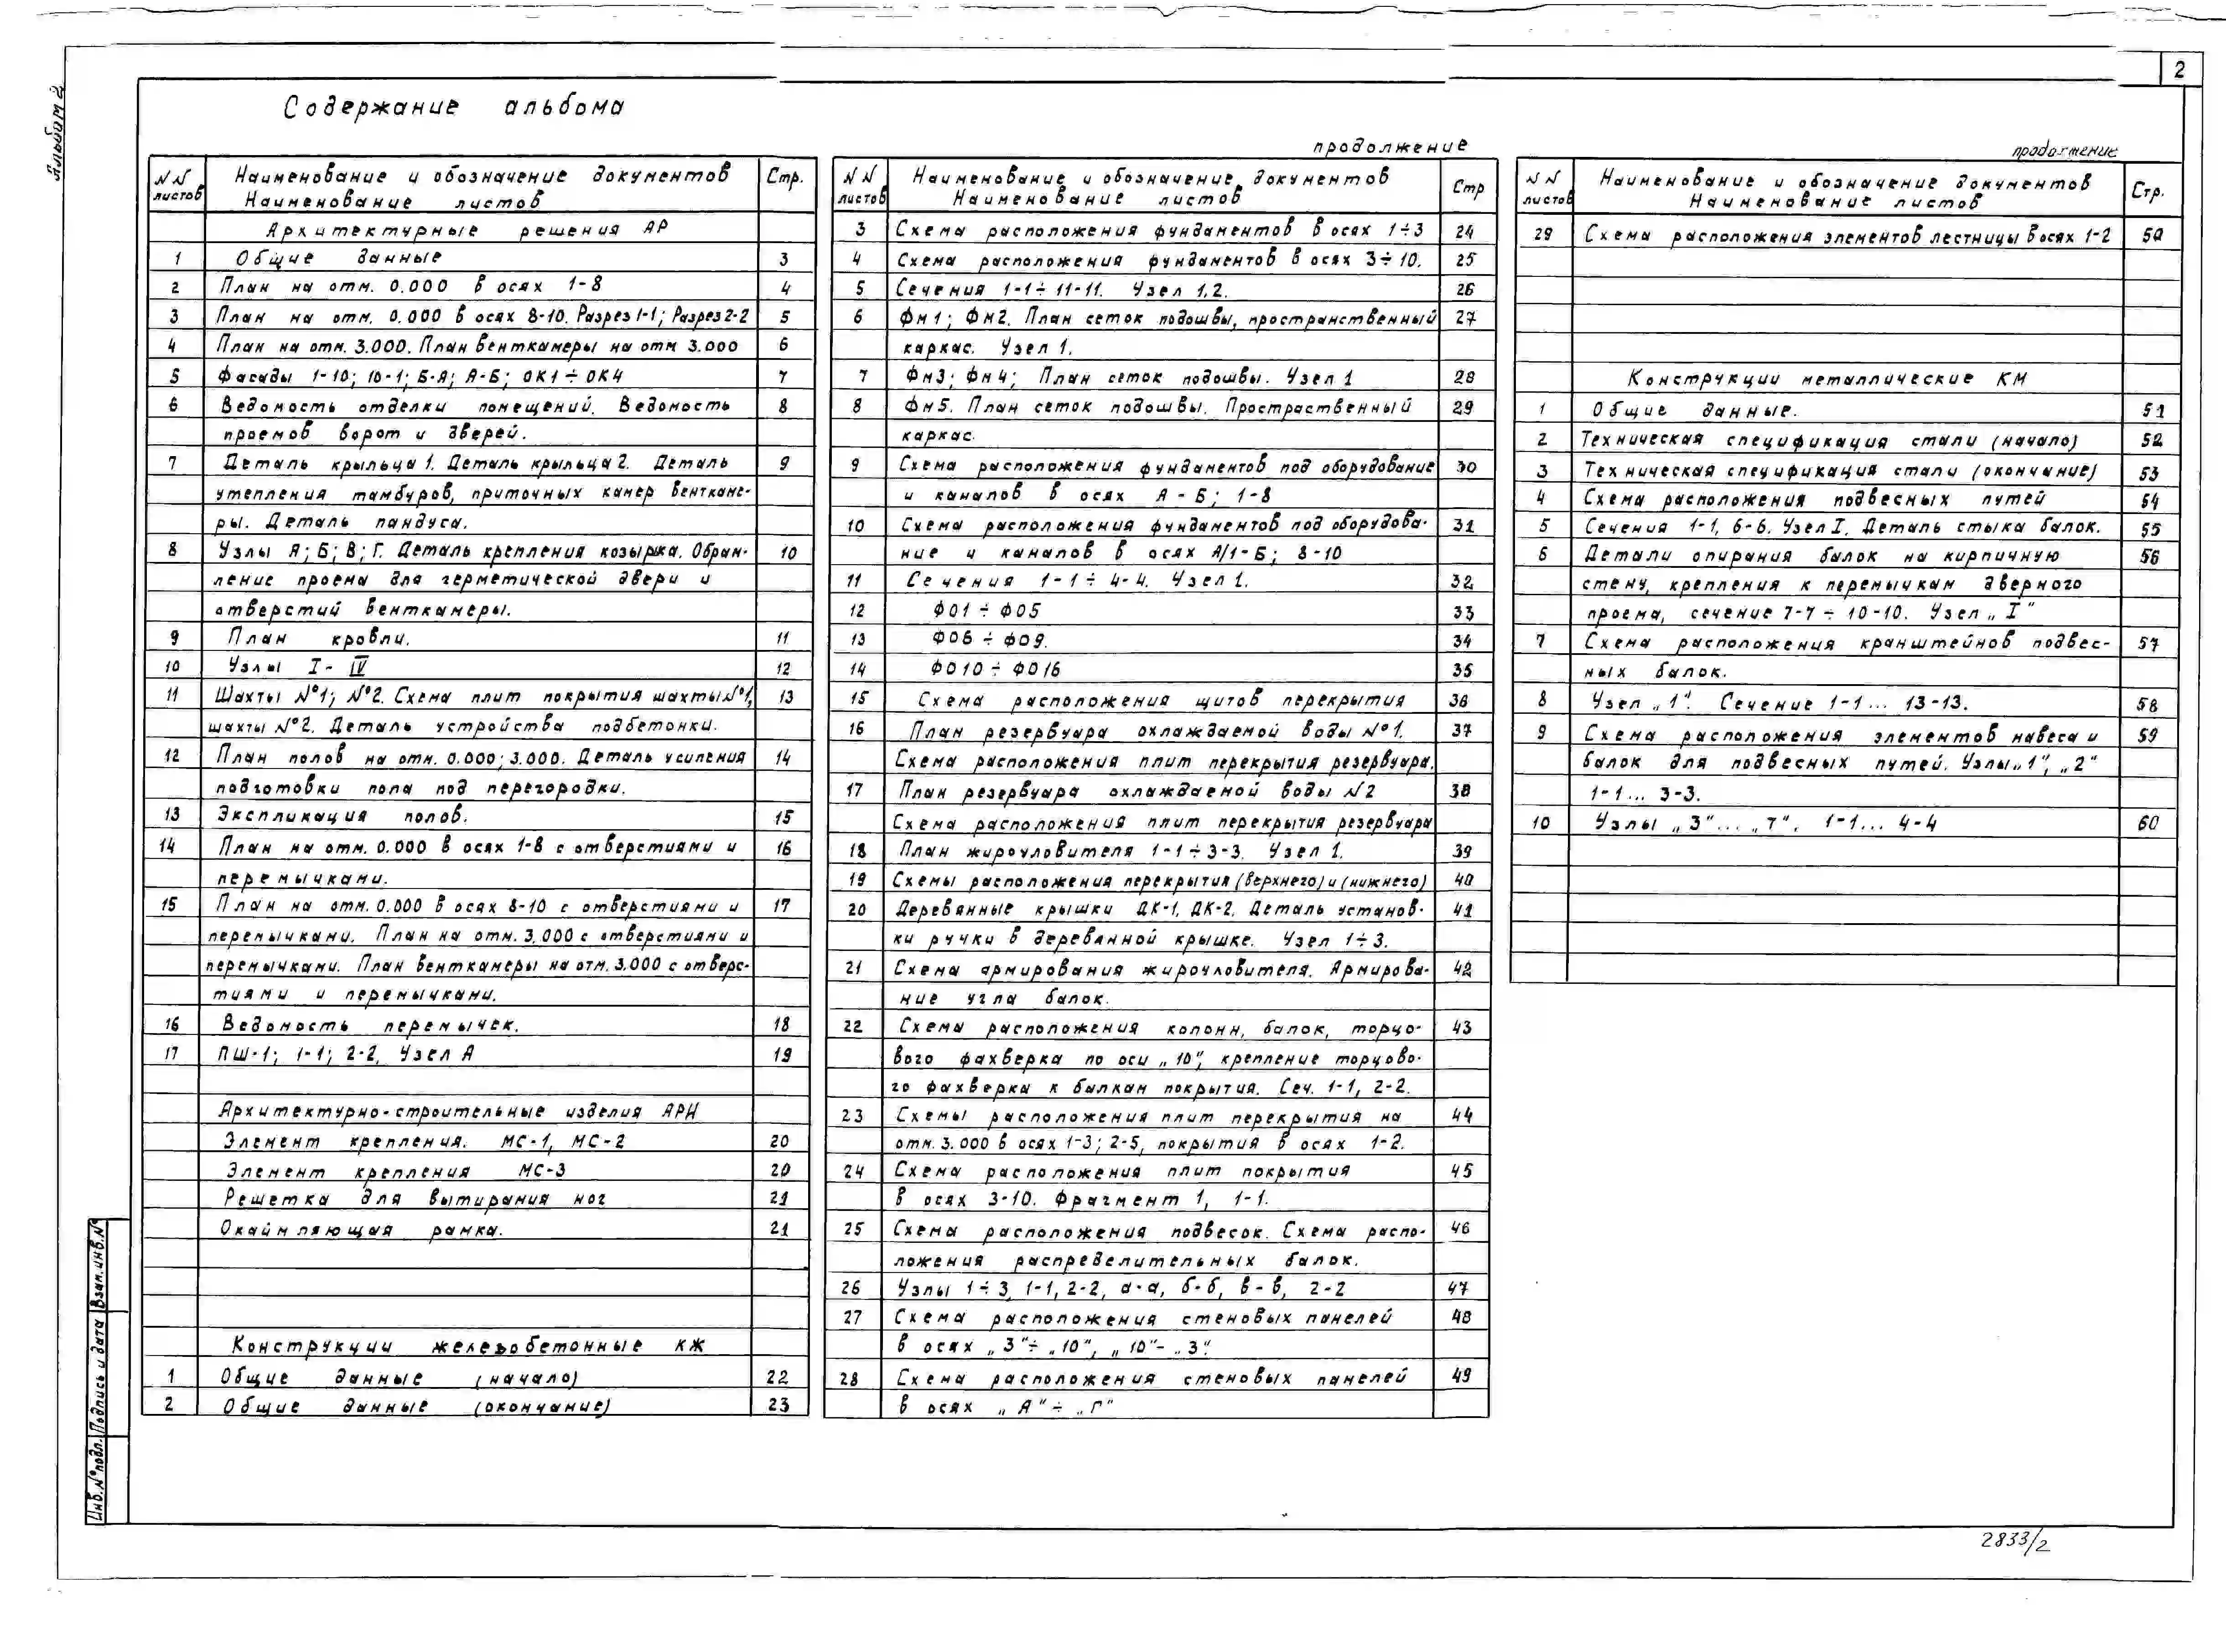 2
Альбом 2
Содержание альбома
NN листов
Наименование и обозначение документов
Наименование листов
Стр.
Архитектурные решения АР
1 Общие данные 3
2 План на отм. 0.000 в осях 1-8 4
3 План на отм. 0.000 в осях 8-10. Разрез 1-1; Разрез 2-2 5
4 План на отм. 3.000. План венткамеры на отм 3.000 6
5 Фасады 1-10; 10-1; Б-А; А-Б; ОК1÷ОК4 7
6 Ведомость отделки помещений. Ведомость 8
проемов ворот и дверей.
7 Деталь крыльца 1. Деталь крыльца 2. Деталь 9
утепления тамбуров, приточных камер венткаме-
ры. Деталь пандуса.
8 Узлы А; Б; В; Г. Деталь крепления козырька. Обрам- 10
ление проема для герметической двери и
отверстий венткамеры.
9 План кровли. 11
10 Узлы I-IV 12
11 Шахты №1; №2. Схема плит покрытия шахты №1, 13
шахты №2. Деталь устройства подбетонки.
12 План полов на отм. 0.000; 3.000. Деталь усиления 14
подготовки пола под перегородки.
13 Экспликация полов. 15
14 План на отм. 0.000 в осях 1-8 с отверстиями и 16
перемычками.
15 План на отм. 0.000 в осях 8-10 с отверстиями и 17
перемычками. План на отм. 3.000 с отверстиями и
перемычками. План венткамеры на отм. 3.000 с отверс-
тиями и перемычками.
16 Ведомость перемычек. 18
17 ПШ-1; 1-1; 2-2, Узел А 19
Архитектурно-строительные изделия АРИ
Элемент крепления. МС-1, МС-2 20
Элемент крепления МС-3 20
Решетка для вытирания ног 21
Окаймляющая рамка. 21
Конструкции железобетонные КЖ
1 Общие данные (начало) 22
2 Общие данные (окончание) 23
продолжение
NN листов
Наименование и обозначение документов
Наименование листов
Стр
3 Схема расположения фундаментов в осях 1÷3 24
4 Схема расположения фундаментов в осях 3÷10. 25
5 Сечения 1-1÷11-11. Узел 1,2. 26
6 Фм1; Фм2. План сеток подошвы, пространственный 27
каркас. Узел 1.
7 Фм3; Фм4; План сеток подошвы. Узел 1 28
8 Фм5. План сеток подошвы. Простраственный 29
каркас.
9 Схема расположения фундаментов под оборудование 30
и каналов в осях А-Б; 1-8
10 Схема расположения фундаментов под оборудова- 31
ние и каналов в осях А/1-Б; 8-10
11 Сечения 1-1÷4-4. Узел 1. 32
12 ФО1÷ФО5 33
13 ФО6÷ФО9. 34
14 ФО10÷ФО16 35
15 Схема расположения щитов перекрытия 36
16 План резервуара охлаждаемой воды №1. 37
Схема расположения плит перекрытия резервуара.
17 План резервуара охлаждаемой воды №2 38
Схема расположения плит перекрытия резервуара
18 План жироуловителя 1-1÷3-3. Узел 1. 39
19 Схемы расположения перекрытия (верхнего) и (нижнего) 40
20 Деревянные крышки ДК-1, ДК-2. Деталь установ- 41
ки ручки в деревянной крышке. Узел 1÷3.
21 Схема армирования жироуловителя. Армирова- 42
ние угла балок.
22 Схемы расположения колонн, балок, торцо- 43
вого фахверка по оси „10", крепление торцово-
го фахверка к балкам покрытия. Сеч. 1-1, 2-2.
23 Схемы расположения плит перекрытия на 44
отм. 3.000 в осях 1-3; 2-5, покрытия в осях 1-2.
24 Схема расположения плит покрытия 45
в осях 3-10. Фрагмент 1, 1-1.
25 Схема расположения подвесок. Схема распо- 46
ложения распределительных балок.
26 Узлы 1÷3, 1-1, 2-2, а-а, б-б, в-в, 2-2 47
27 Схема расположения стеновых панелей 48
в осях „3"÷„10", „10"-„3".
28 Схема расположения стеновых панелей 49
в осях „А"÷„Г"
продолжение
NN листов
Наименование и обозначение документов
Наименование листов
Стр.
29 Схема расположения элементов лестницы в осях 1-2 50
Конструкции металлические КМ
1 Общие данные. 51
2 Техническая спецификация стали (начало) 52
3 Техническая спецификация стали (окончание) 53
4 Схема расположения подвесных путей 54
5 Сечения 1-1, 6-6. Узел I. Деталь стыка балок. 55
6 Детали опирания балок на кирпичную 56
стену, крепления к перемычкам дверного
проема, сечение 7-7÷10-10. Узел „I"
7 Схема расположения кранштейнов подвес- 57
ных балок.
8 Узел „1". Сечение 1-1... 13-13. 58
9 Схема расположения элементов навеса и 59
балок для подвесных путей. Узлы „1", „2"
1-1... 3-3.
10 Узлы „3"... „7". 1-1... 4-4 60
Инв.№ подл. Подпись и дата Взам.инв.№
2833/2